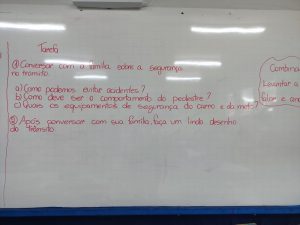 Tarefa
① Conversar com a família sobre a segurança
no trânsito.
a) Como podemos evitar acidentes?
b) Como deve ser o comportamento do pedestre?
c) Quais os equipamentos de segurança do carro e da moto?
② Após conversar com sua família, faça um lindo desenho
do trânsito.
Combina
Levantar a
falar e